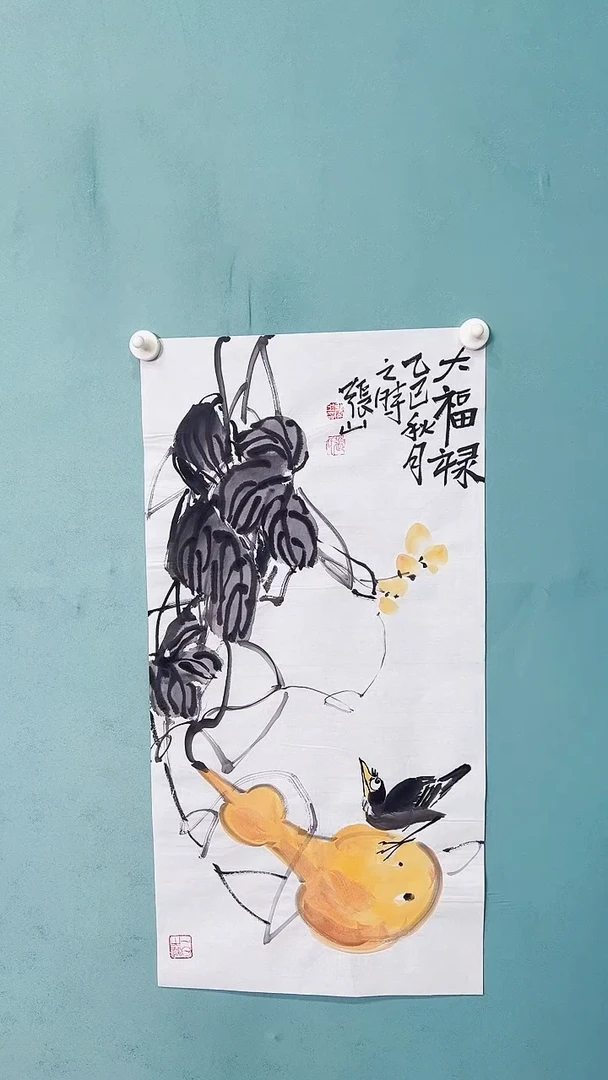 大福禄
乙巳秋月
之時
張山